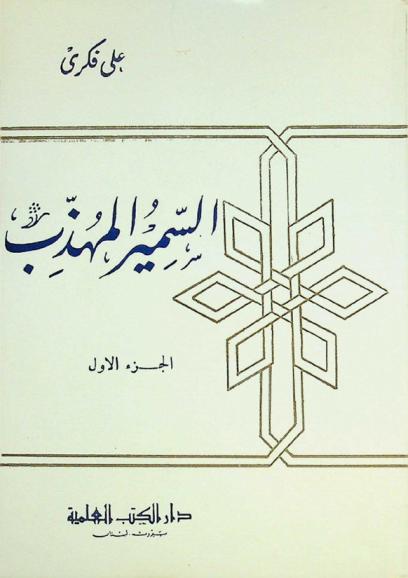 علي فكري
السِّمِيرُ المهذِّب
الجزء الاول
دار الكتب العلمية
بيروت - لبنان